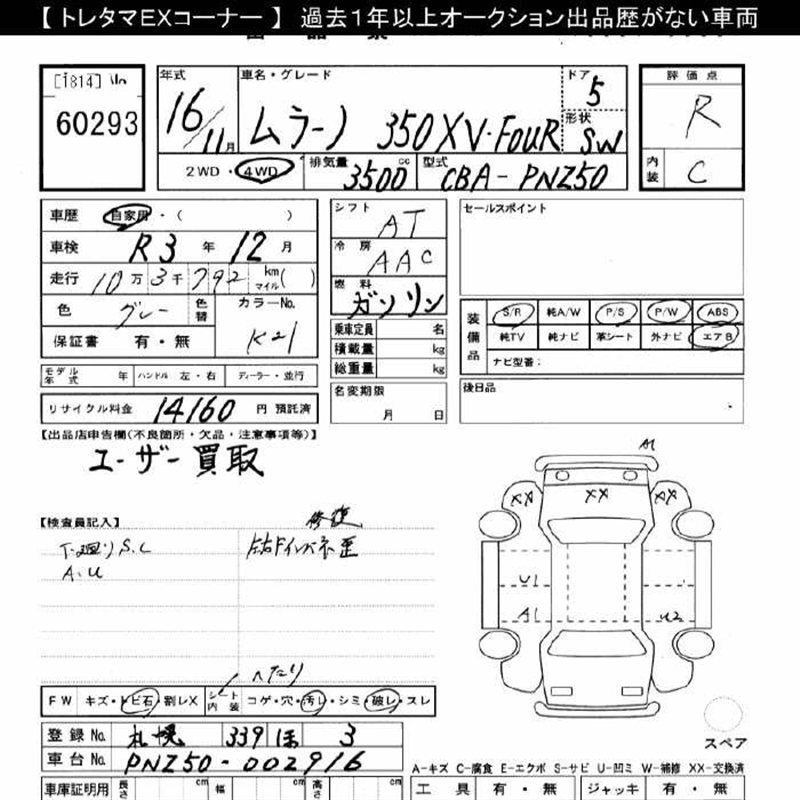 【 トレタマEXコーナー 】 過去1年以上オークション出品歴がない車両
[1814]
60293
年式
16/11月
車名・グレード
ムラーノ 350XV・FOUR
ドア
5
形状
SW
評価点
R
内装
C
2WD・4WD
排気量
3500 cc
型式
CBA-PNZ50
車歴 自家用・( )
車検 R3年 12月
走行 10万3千792 km マイル( )
色 グレー
色替
カラーNo.
K21
保証書 有・無
シフト
AT
冷房
AAC
燃料
ガソリン
乗車定員 名
積載量 kg
総重量 kg
セールスポイント
装備品
S/R 純A/W P/S P/W ABS
純TV 純ナビ 革シート 外ナビ エアB
ナビ型番:
モデル年式 年 ハンドル 左・右 ディーラー・並行
名変期限
月 日
後日品
リサイクル料金 14160 円 預託済
【出品店申告欄(不良箇所・欠品・注意事項等)】
ユーザー買取
【検査員記入】
修復
下廻りS.C
A.U
左右Fインパネ歪
A1
XX XX XX
U1
A1
U2
スペア
へたり
FW キズ・トビ石・割レX シート内装 コゲ・穴・汚レ・シミ・破レ・スレ
登録No. 札幌 339 ほ 3
車台No. PNZ50-002916
A-キズ C-腐食 E-エクボ S-サビ U-凹ミ W-補修 XX-交換済
車庫証明用 長さ cm 幅 cm 高さ cm
工具 有・無 ジャッキ 有・無